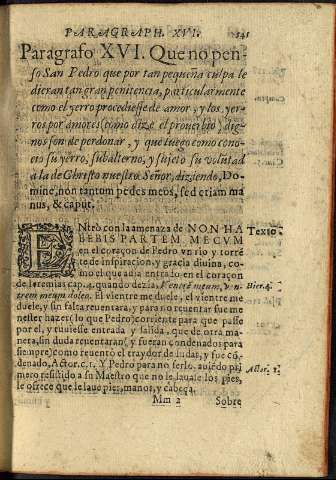 PARAGRAPH. XVI. 141
Paragrafo XVI. Que no pen-
so San Pedro que por tan pequeña culpa le
dieran tan gran penitencia, particularmente
como el yerro procediesse de amor, y los yer-
ros por amores (como dize el prouerbio) dig-
nos son de perdonar, y que luego como cono-
cio su yerro, subalterno, y sujeto su volũtad
a la de Christo nuestro Señor, diziendo, Do-
mine, non tantum pedes meos, sed etiam ma
nus, & caput.
ENtrò con la amenaza de NON HA Texto.
BEBIS PARTEM MECVM
en el coraçon de Pedro vn rio y torrẽ
te de inspiracion, y gracia diuina, co-
mo el que auia entrado en el coraçon
de Ieremias cap. 4. quando dezia, Ventrẽ meum, ven- Hier. 4.
trem meum doleo. El vientre me duele, el vientre me
duele, y sin falta reuentara, y para no reuentar fue me
nester hazer (lo que Pedro) corriente para que passe
por el, y tuuiesse entrada y salida, que de otra ma-
nera, sin duda reuentaran (y fueran condenados para
siempre) como reuentò el traydor de Iudas, y fue cõ-
denado, Actor. c. 1. Y Pedro para no serlo, auiẽdo pri Actor. 1.
mero resistido a su Maestro que no le lauasse los pies,
le ofrece que le laue pies, manos, y cabeça.
Mm 2 Sobre